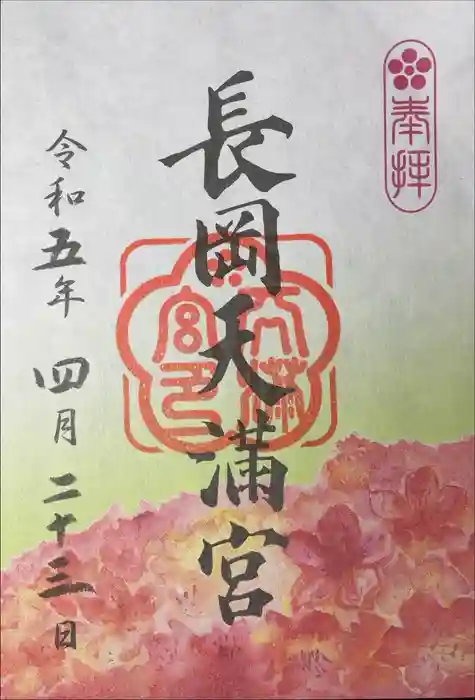 奉拝
長岡天満宮
天満宮印
令和五年 四月 二十三日